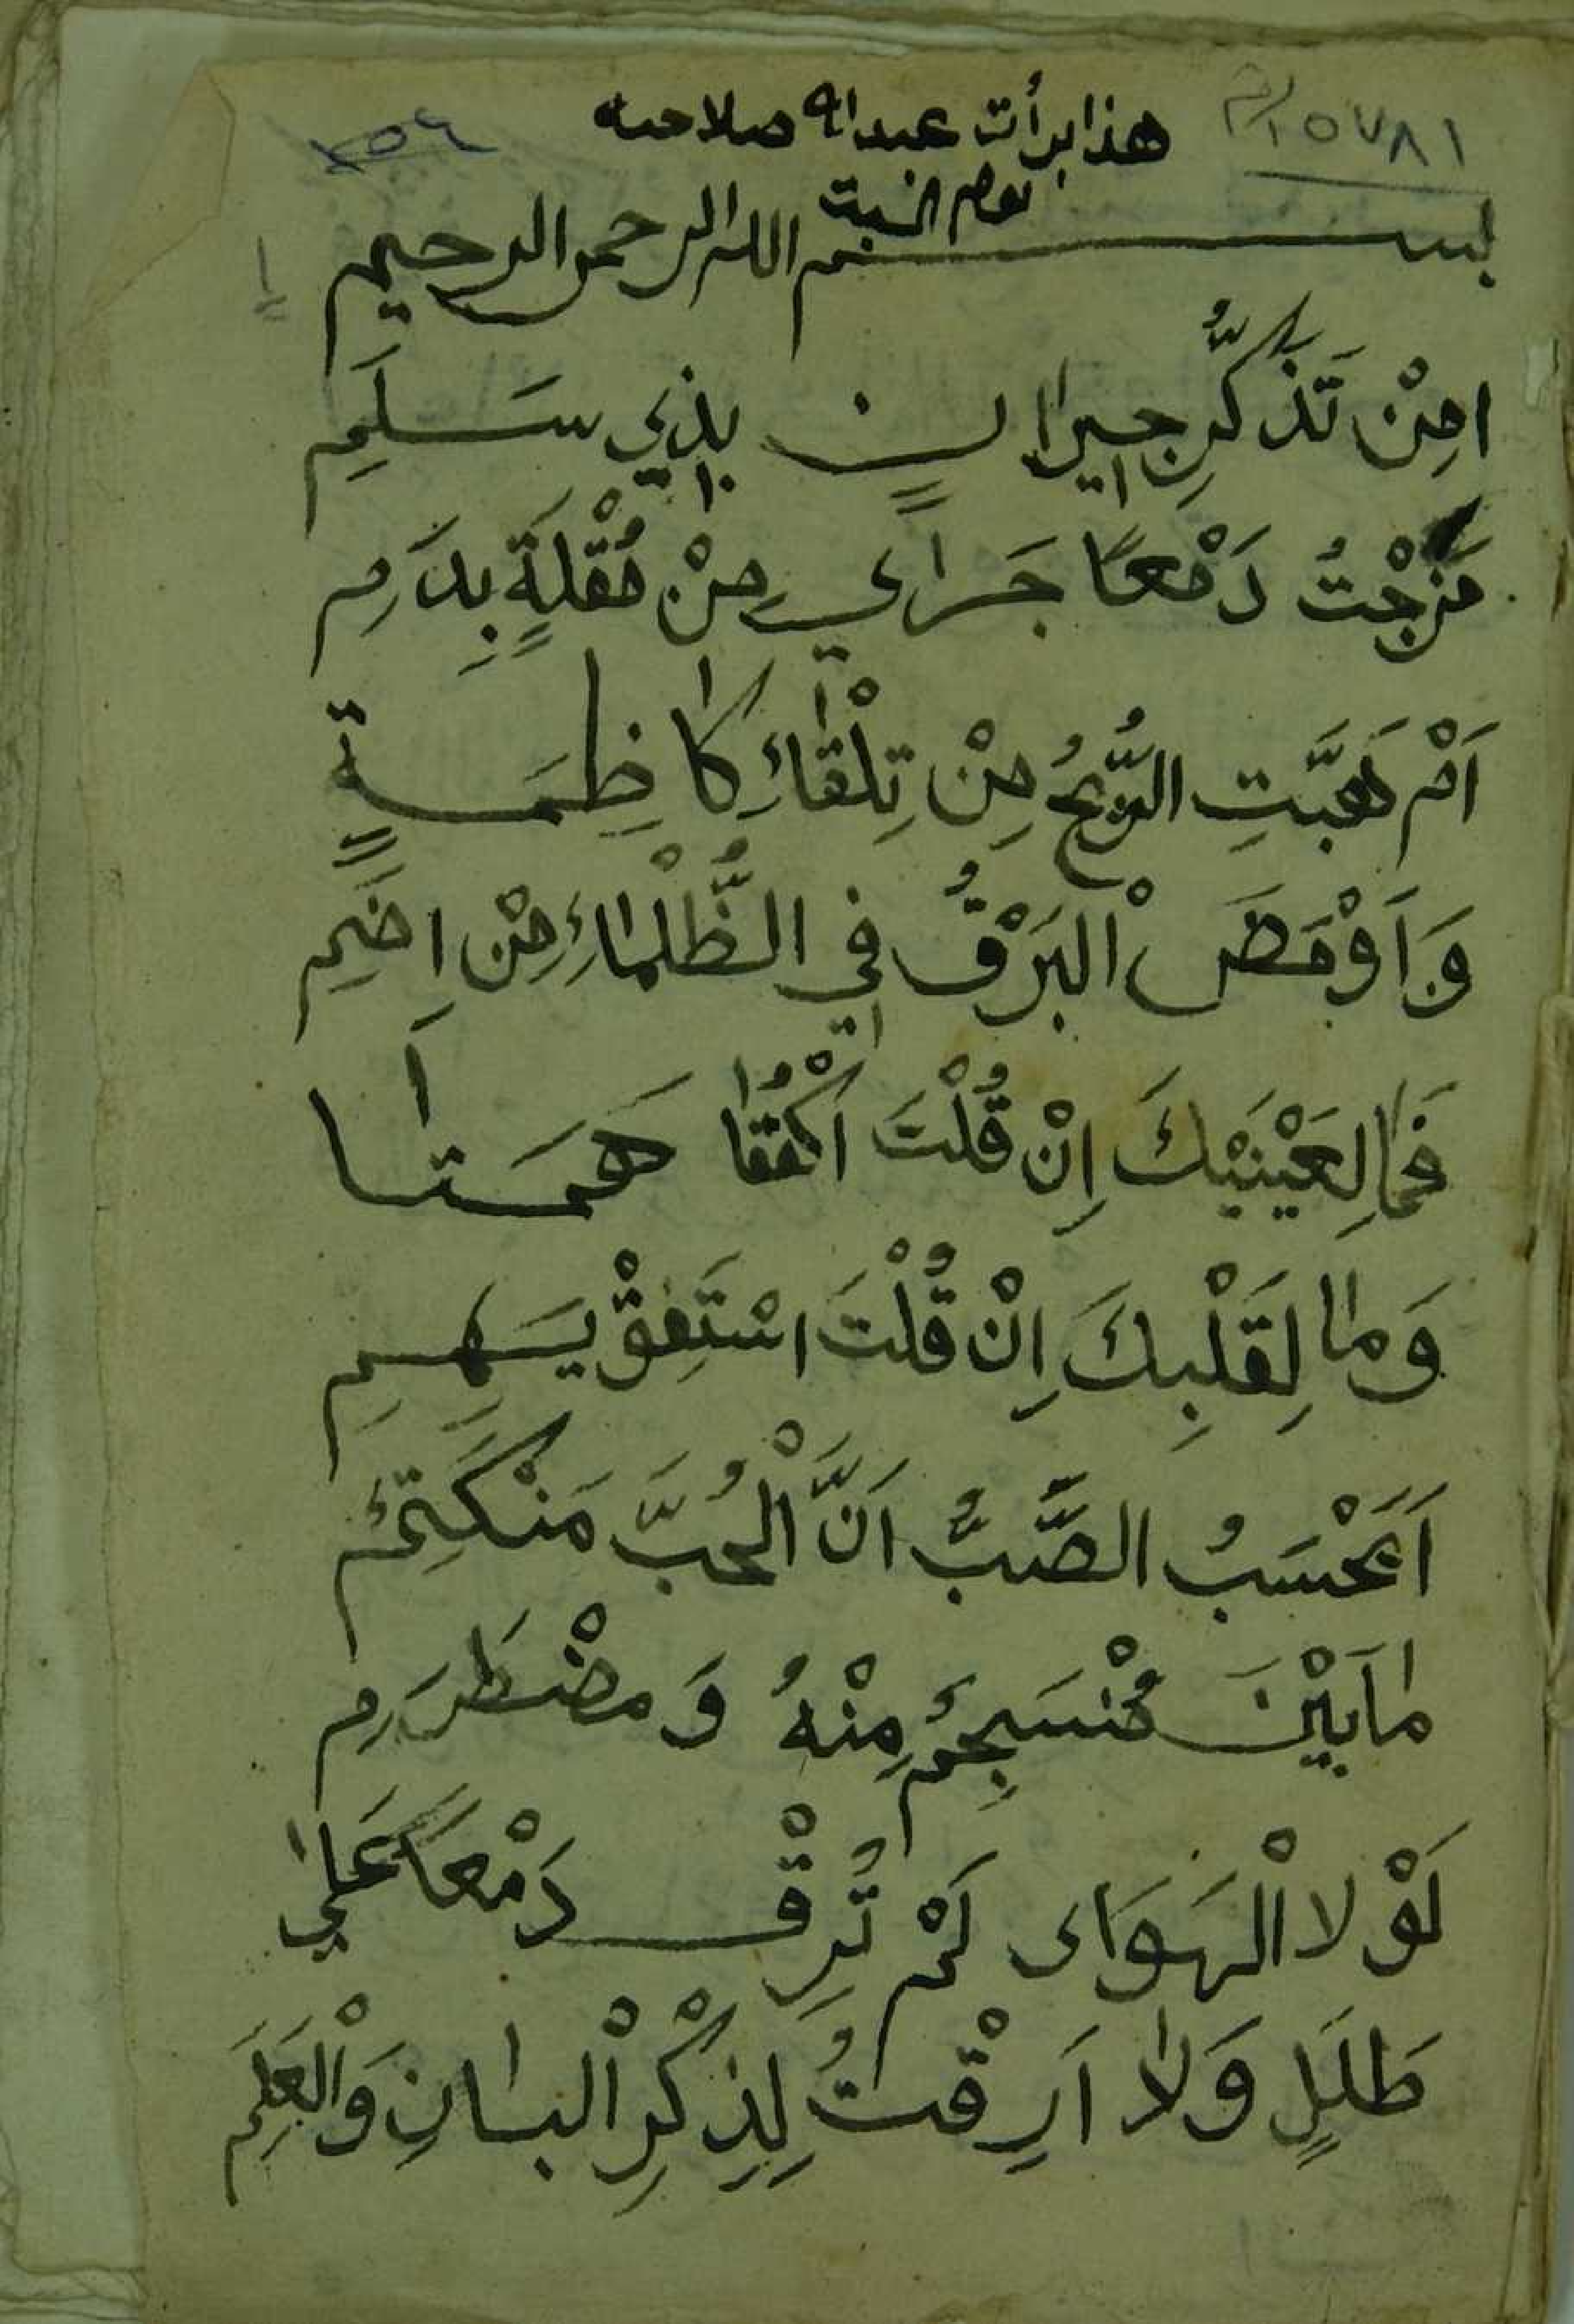 ١٥٧٨١/م
٢٥٤
هذا برأت عبدالله صلاحه
يوم السبة
بسم الله الرحمن الرحيم
امِنْ تَذَكُّرِ جِيرانٍ بِذِي سَلَمِ
مَزَجْتُ دَمْعًا جَرٰي مِنْ مُقْلَةٍ بِدَمِ
اَمْ هَبَّتِ الرِّيحُ مِنْ تِلْقٰاءِ كٰاظِمَةٍ
وَاَوْمَضَ الْبَرْقُ فِي الظُّلْمٰاءِ مِنْ اِضَمِ
فَمٰا لِعَيْنَيْكَ اِنْ قُلْتَ اكْفُفٰا هَمَتٰا
وَمٰا لِقَلْبِكَ اِنْ قُلْتَ اسْتَفِقْ يَهِمِ
اَيَحْسَبُ الصَّبُّ اَنَّ الْحُبَّ مَنْكَتِمٌ
مٰا بَيْنَ مُنْسَجِمٍ مِنْهُ وَمضْطَرَمِ
لَوْلا الْهَوَاى لَمْ تُرِقْ دَمْعًا عَلٰي
طَلَلٍ وَلاٰ اَرِقْتُ لِذِكْرِ الْبٰانِ وَالْعَلَمِ